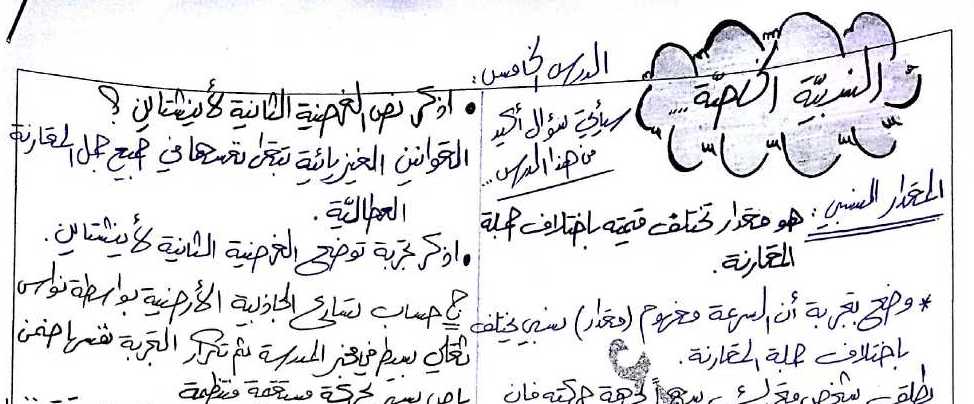 الدرس الخامس:
النسبيّة الخاصّة....
سيأتي سؤال أكيد
من هذا الدرس...
المقدار النسبي: هو مقدار تختلف قيمته باختلاف جملة
المقارنة.
* وضح بتجربة أن السرعة مفهوم (مقدار) نسبي يختلف
باختلاف جملة المقارنة.
يطلق شخص
• اذكر نص الفرضية الثانية لأينشتاين؟
القوانين الفيزيائية تبقى نفسها في جميع جمل المقارنة
العطاليّة.
• اذكر تجربة توضح الفرضية الثانية لأينشتاين.
ج حساب تسارع الجاذبية الأرضية بواسطة نواس
ثقلي بسيط في مخبر المدرسة ثم تكرار التجربة نفسها ضمن
باص يسير بحركة مستقيمة منتظمة